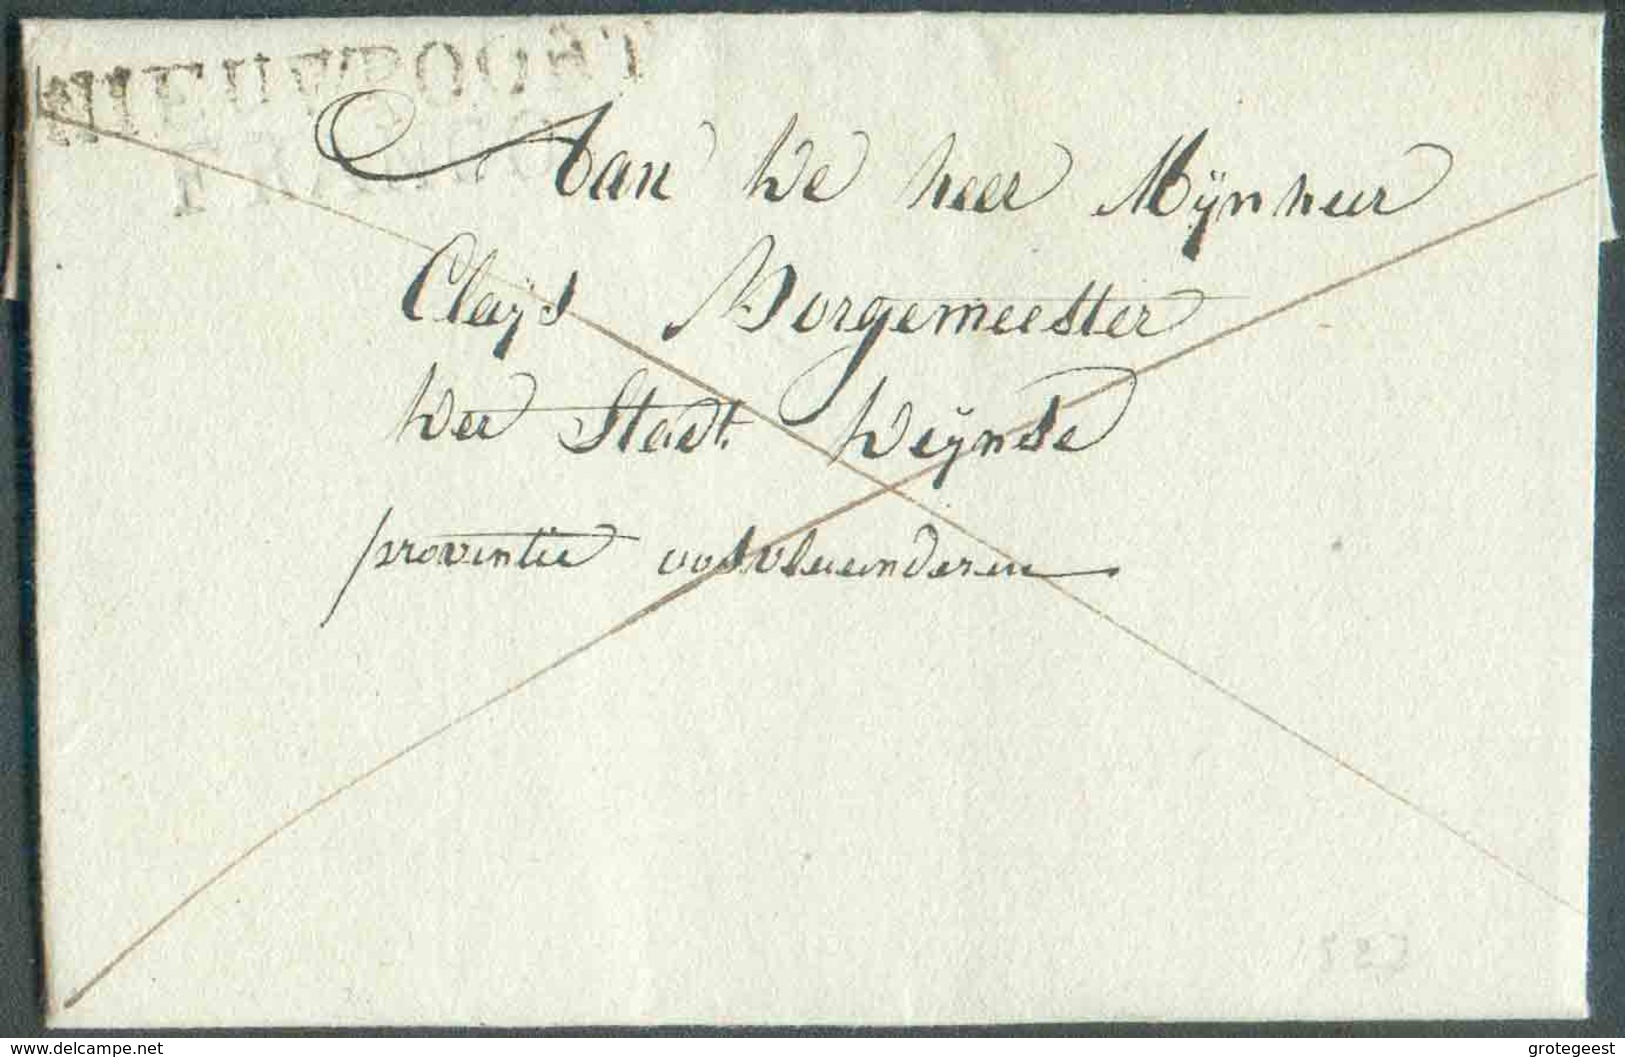 NIEUWPOORT
FRANCO
Aan de heer Mÿnheer
Claÿs Borgemeester
der Stadt deÿnse
provintie oostvlaenderen
www.delcampe.net
grotegeest